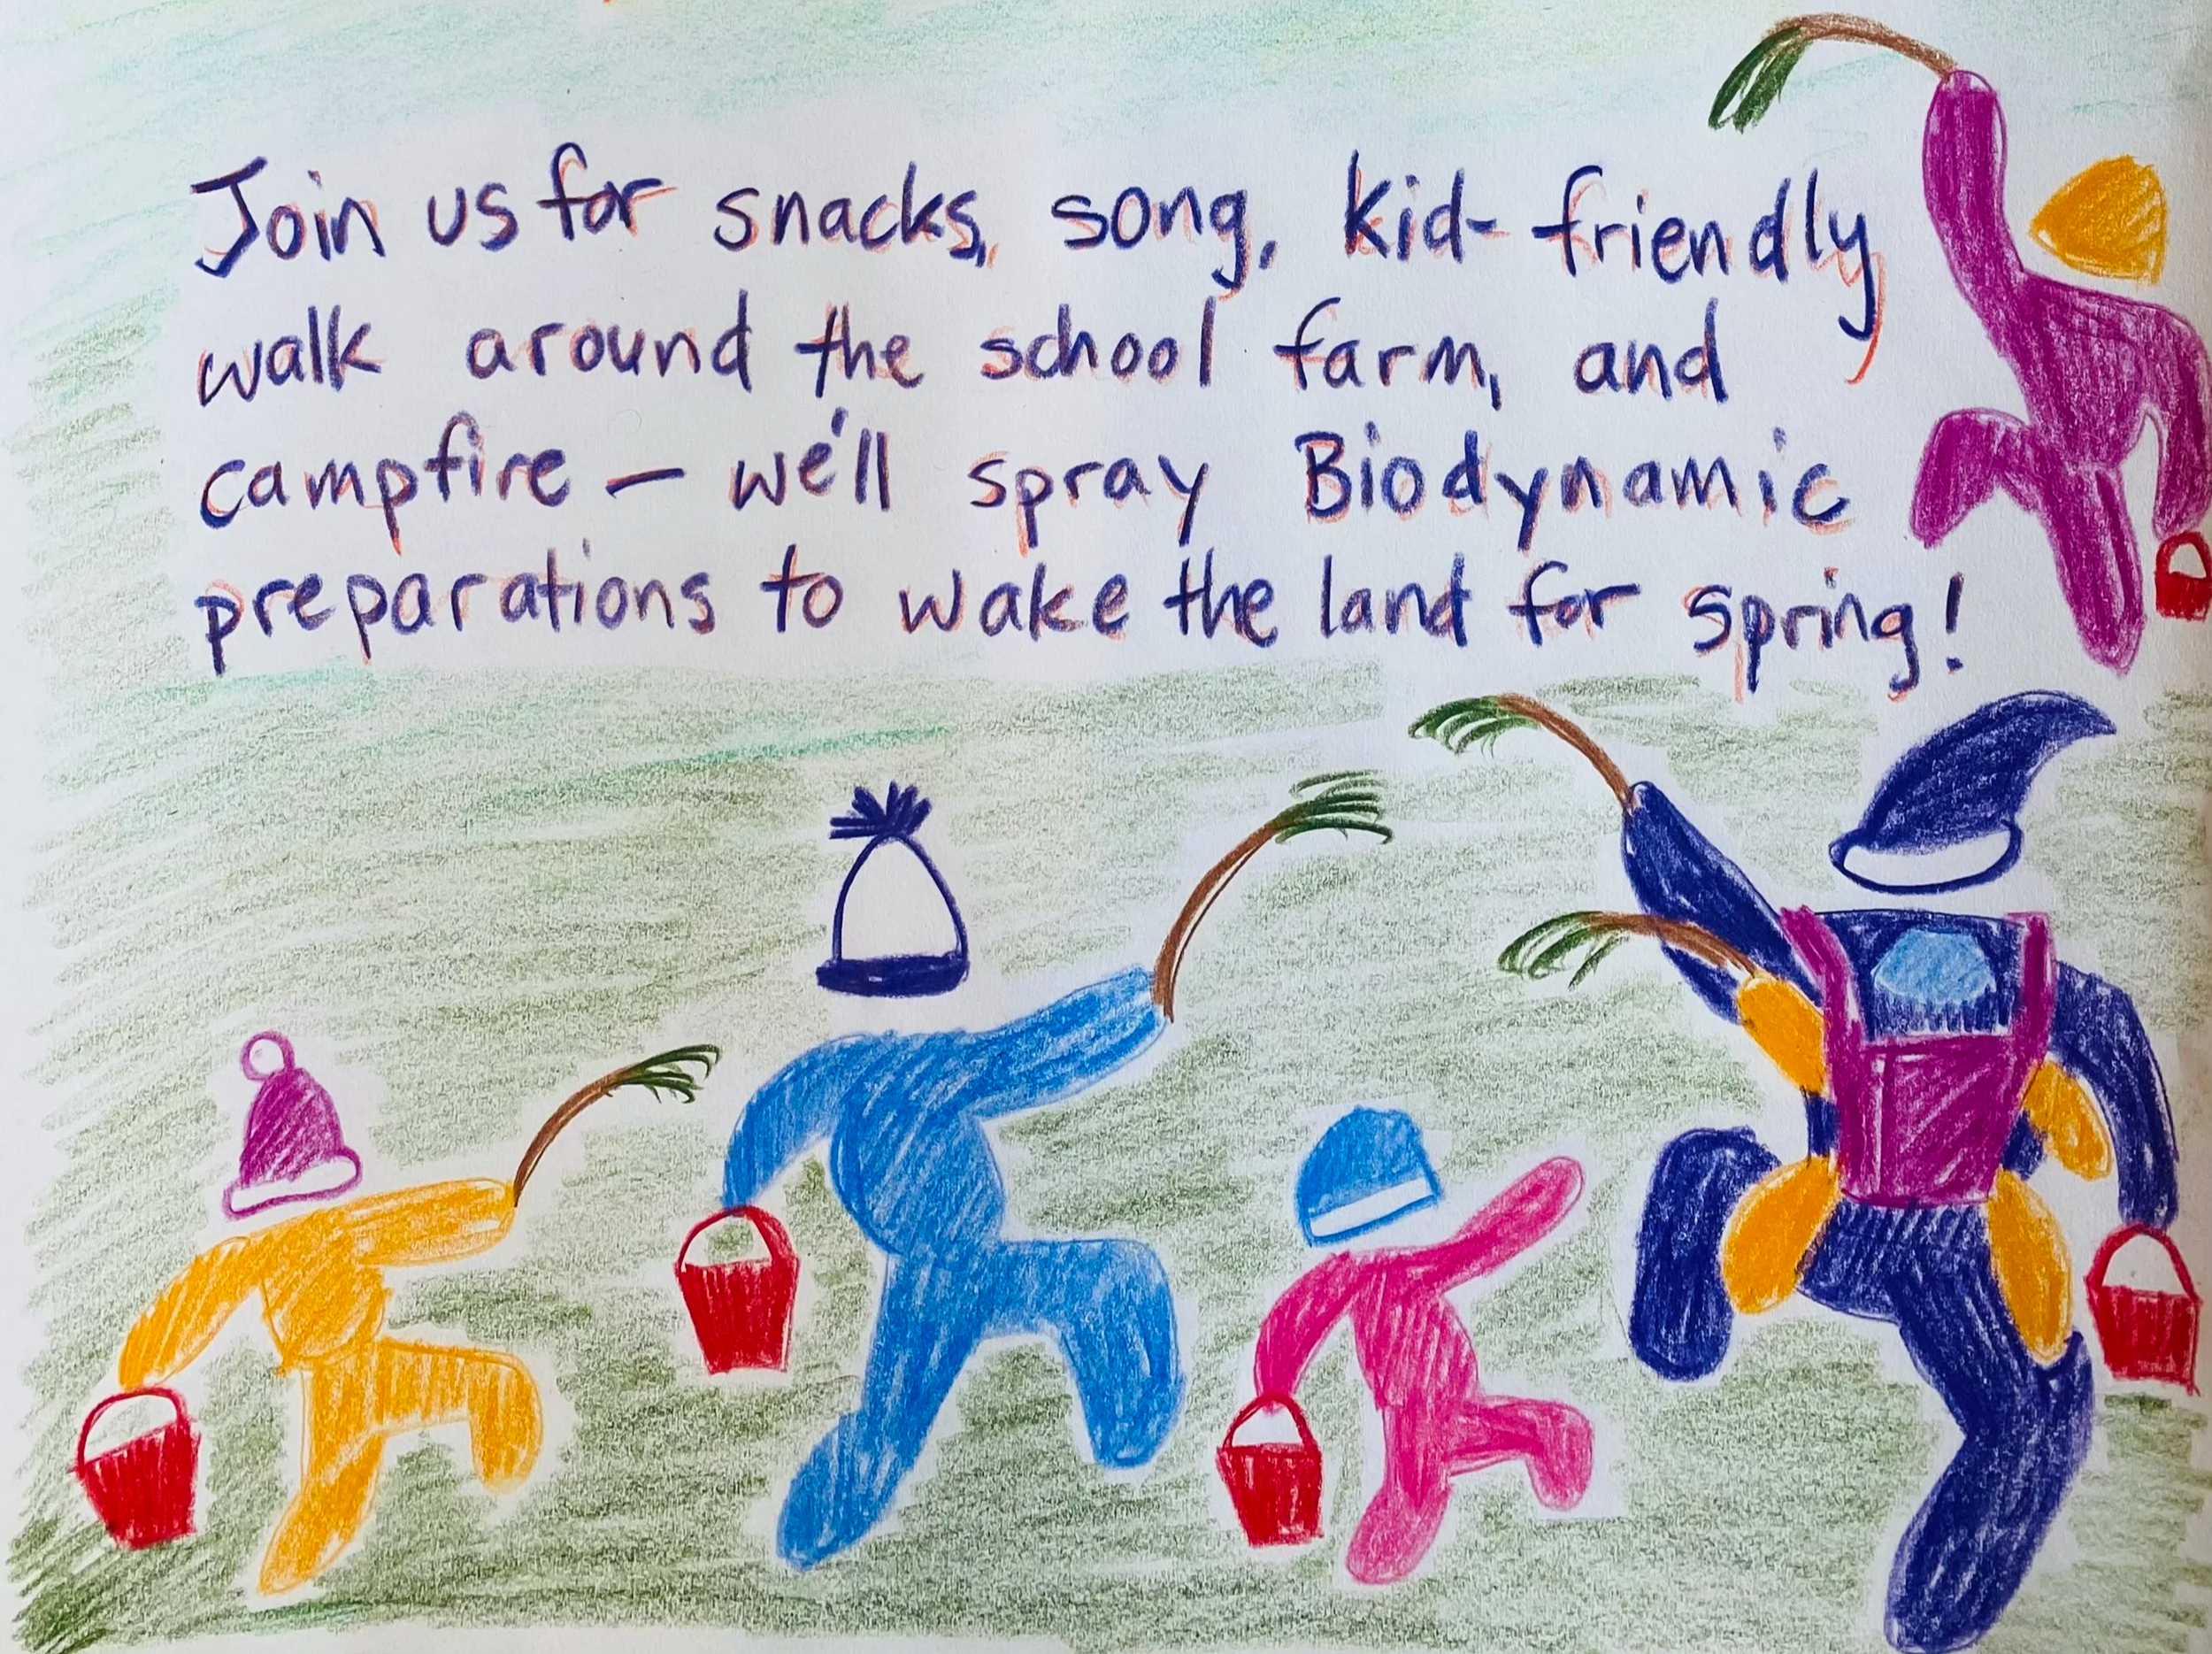 Join us for snacks, song, kid-friendly
walk around the school farm, and
campfire — we'll spray Biodynamic
preparations to wake the land for spring!